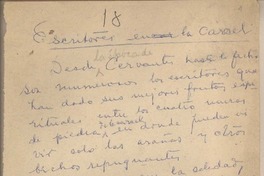 18
Escritores en la Carcel
la época de
Desde Cervantes hasta la fecha
son numerosos los escritores que
han dado sus mejores frutos espi
rituales entre los cuatro muros
de piedra, en donde puede vi
vir solo las arañas y otros
bichos repugnantes
la soledad,